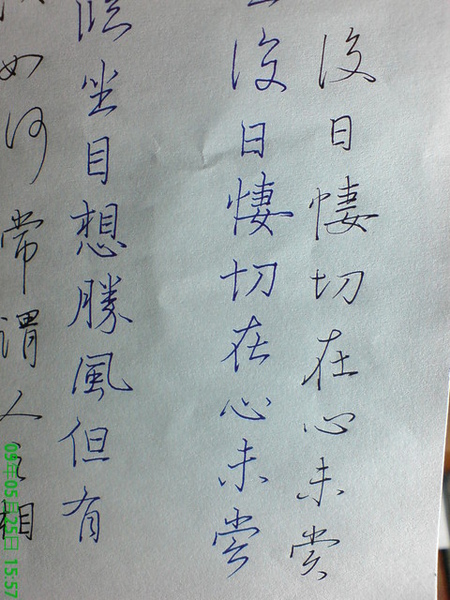 後日悽切在心未嘗
後日悽切在心未嘗
臨坐目想勝風但有
如何常謂人之相
09年05月25日 15:57